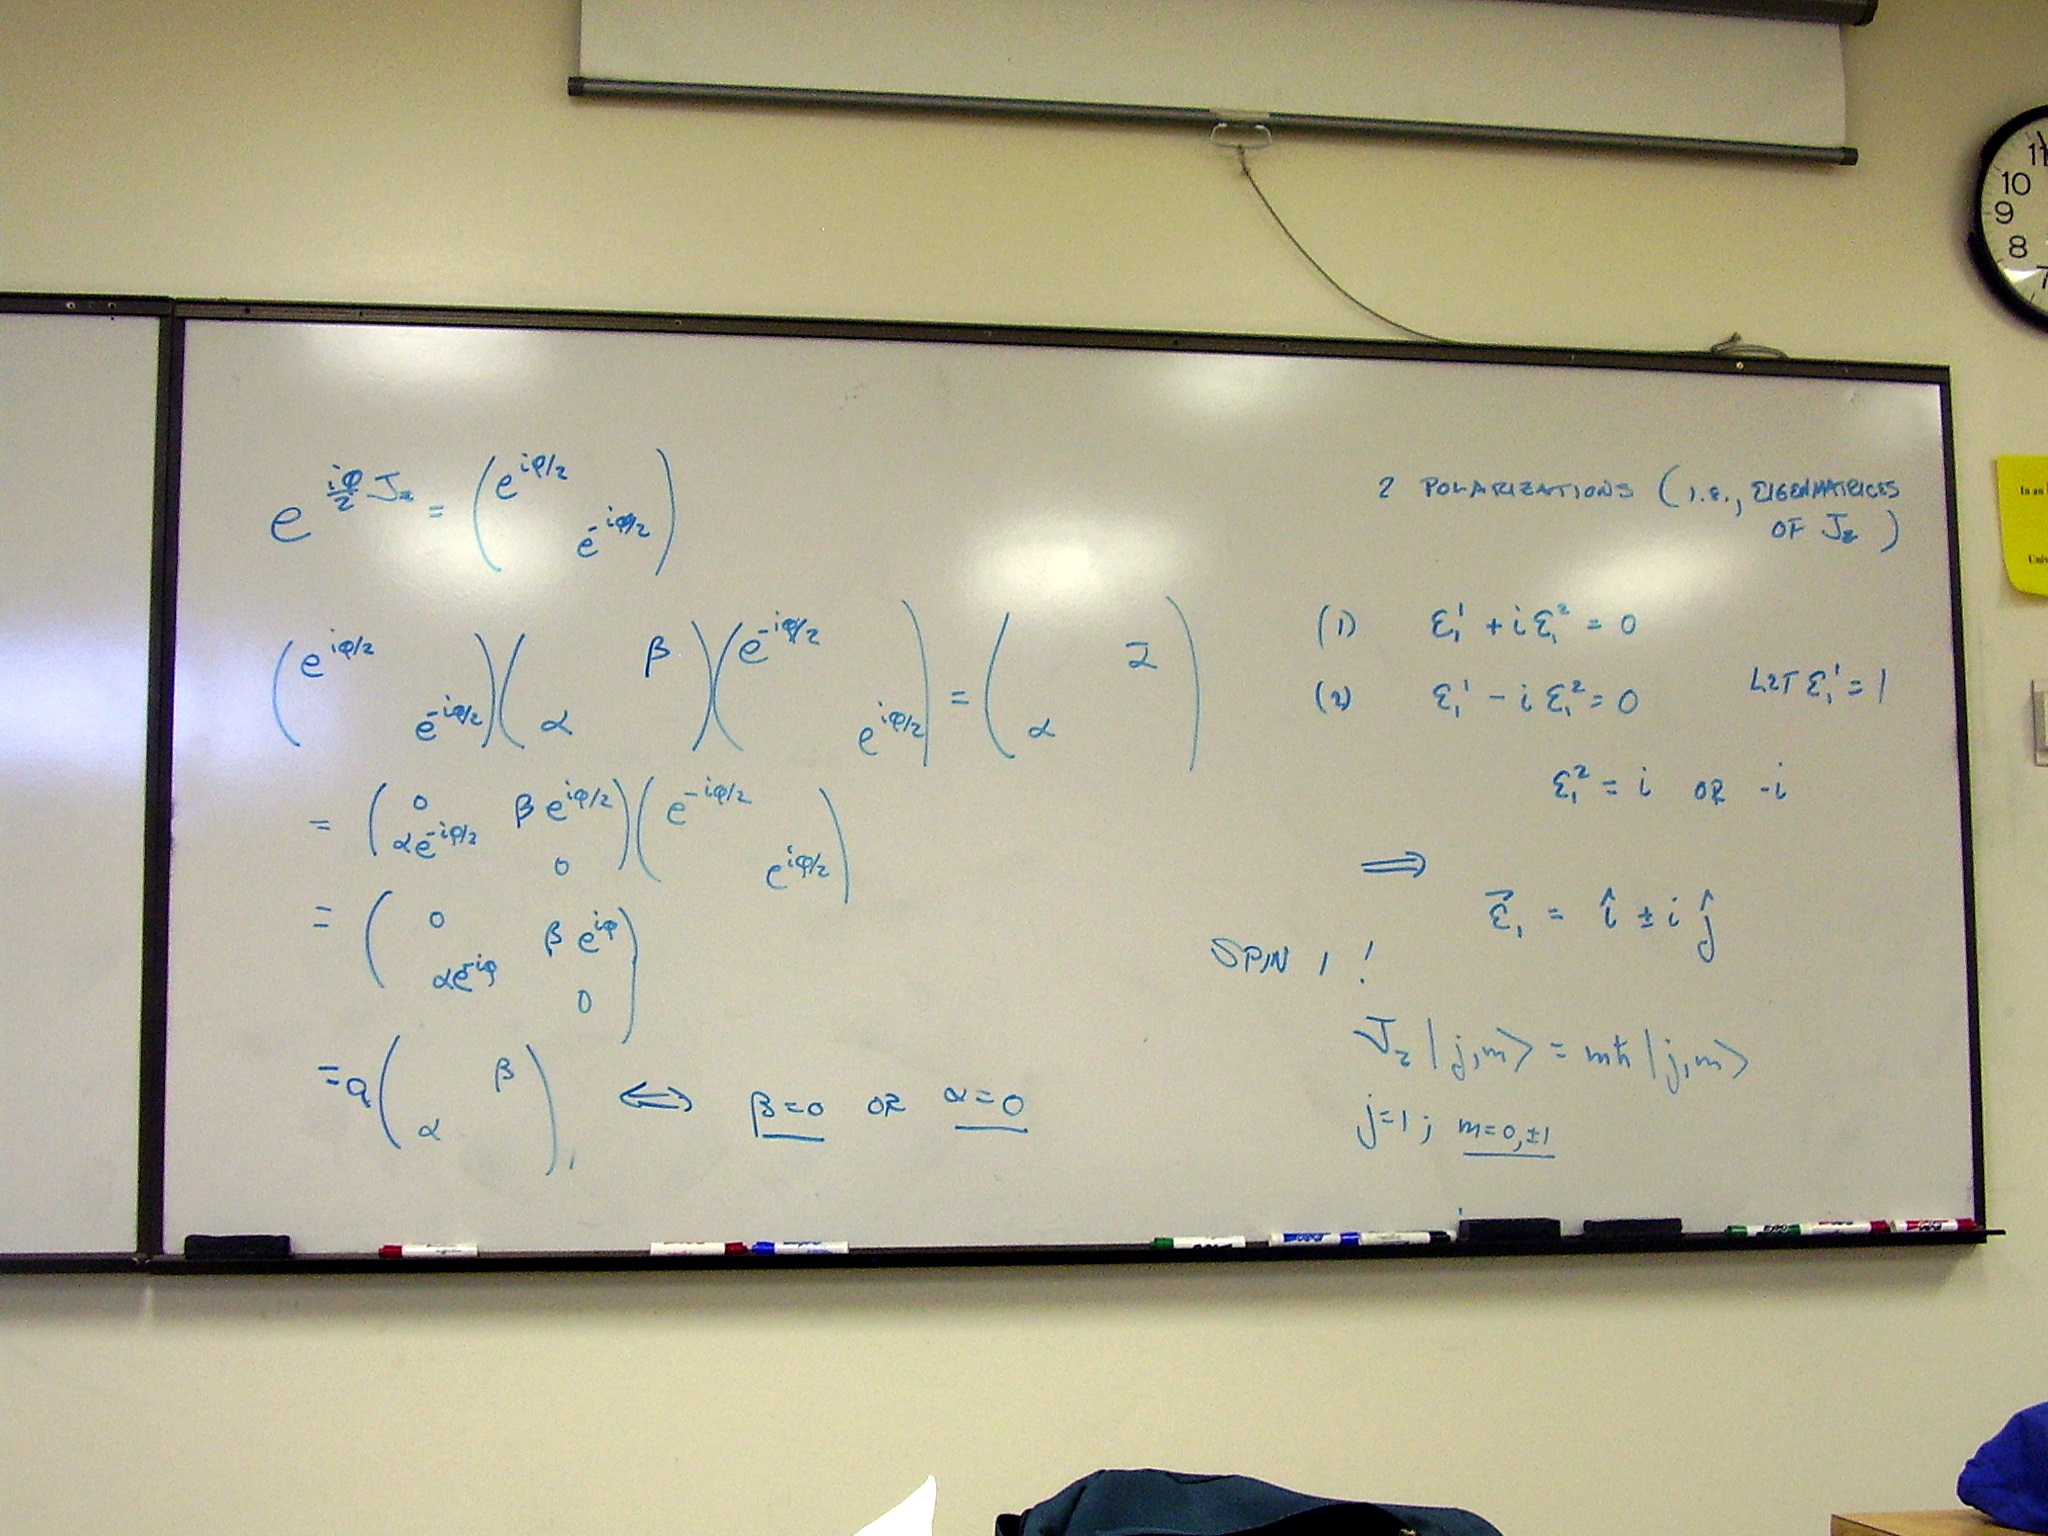 e^{iφ/2 J_z} = ( e^{iφ/2} e^{-iφ/2} )
( e^{iφ/2} e^{-iφ/2} ) ( β α ) ( e^{-iφ/2} e^{iφ/2} ) = ( α )
= ( 0 β e^{iφ/2} αe^{-iφ/2} 0 ) ( e^{-iφ/2} e^{iφ/2} )
= ( 0 β e^{iφ} αe^{-iφ} 0 )
= a ( β α ), ⟺ β=0 OR α=0
2 POLARIZATIONS (I.E., EIGENMATRICES
OF J_z)
(1) ε₁¹ + i ε₁² = 0
(2) ε₁¹ - i ε₁² = 0 LET ε₁¹ = 1
ε₁² = i OR -i
⟹
ε⃗₁ = î ± i ĵ
SPIN 1 !
J_z |j,m> = mħ |j,m>
j=1 ; m=0,±1
11
10
9
8
7
In an
Univ
EXPO